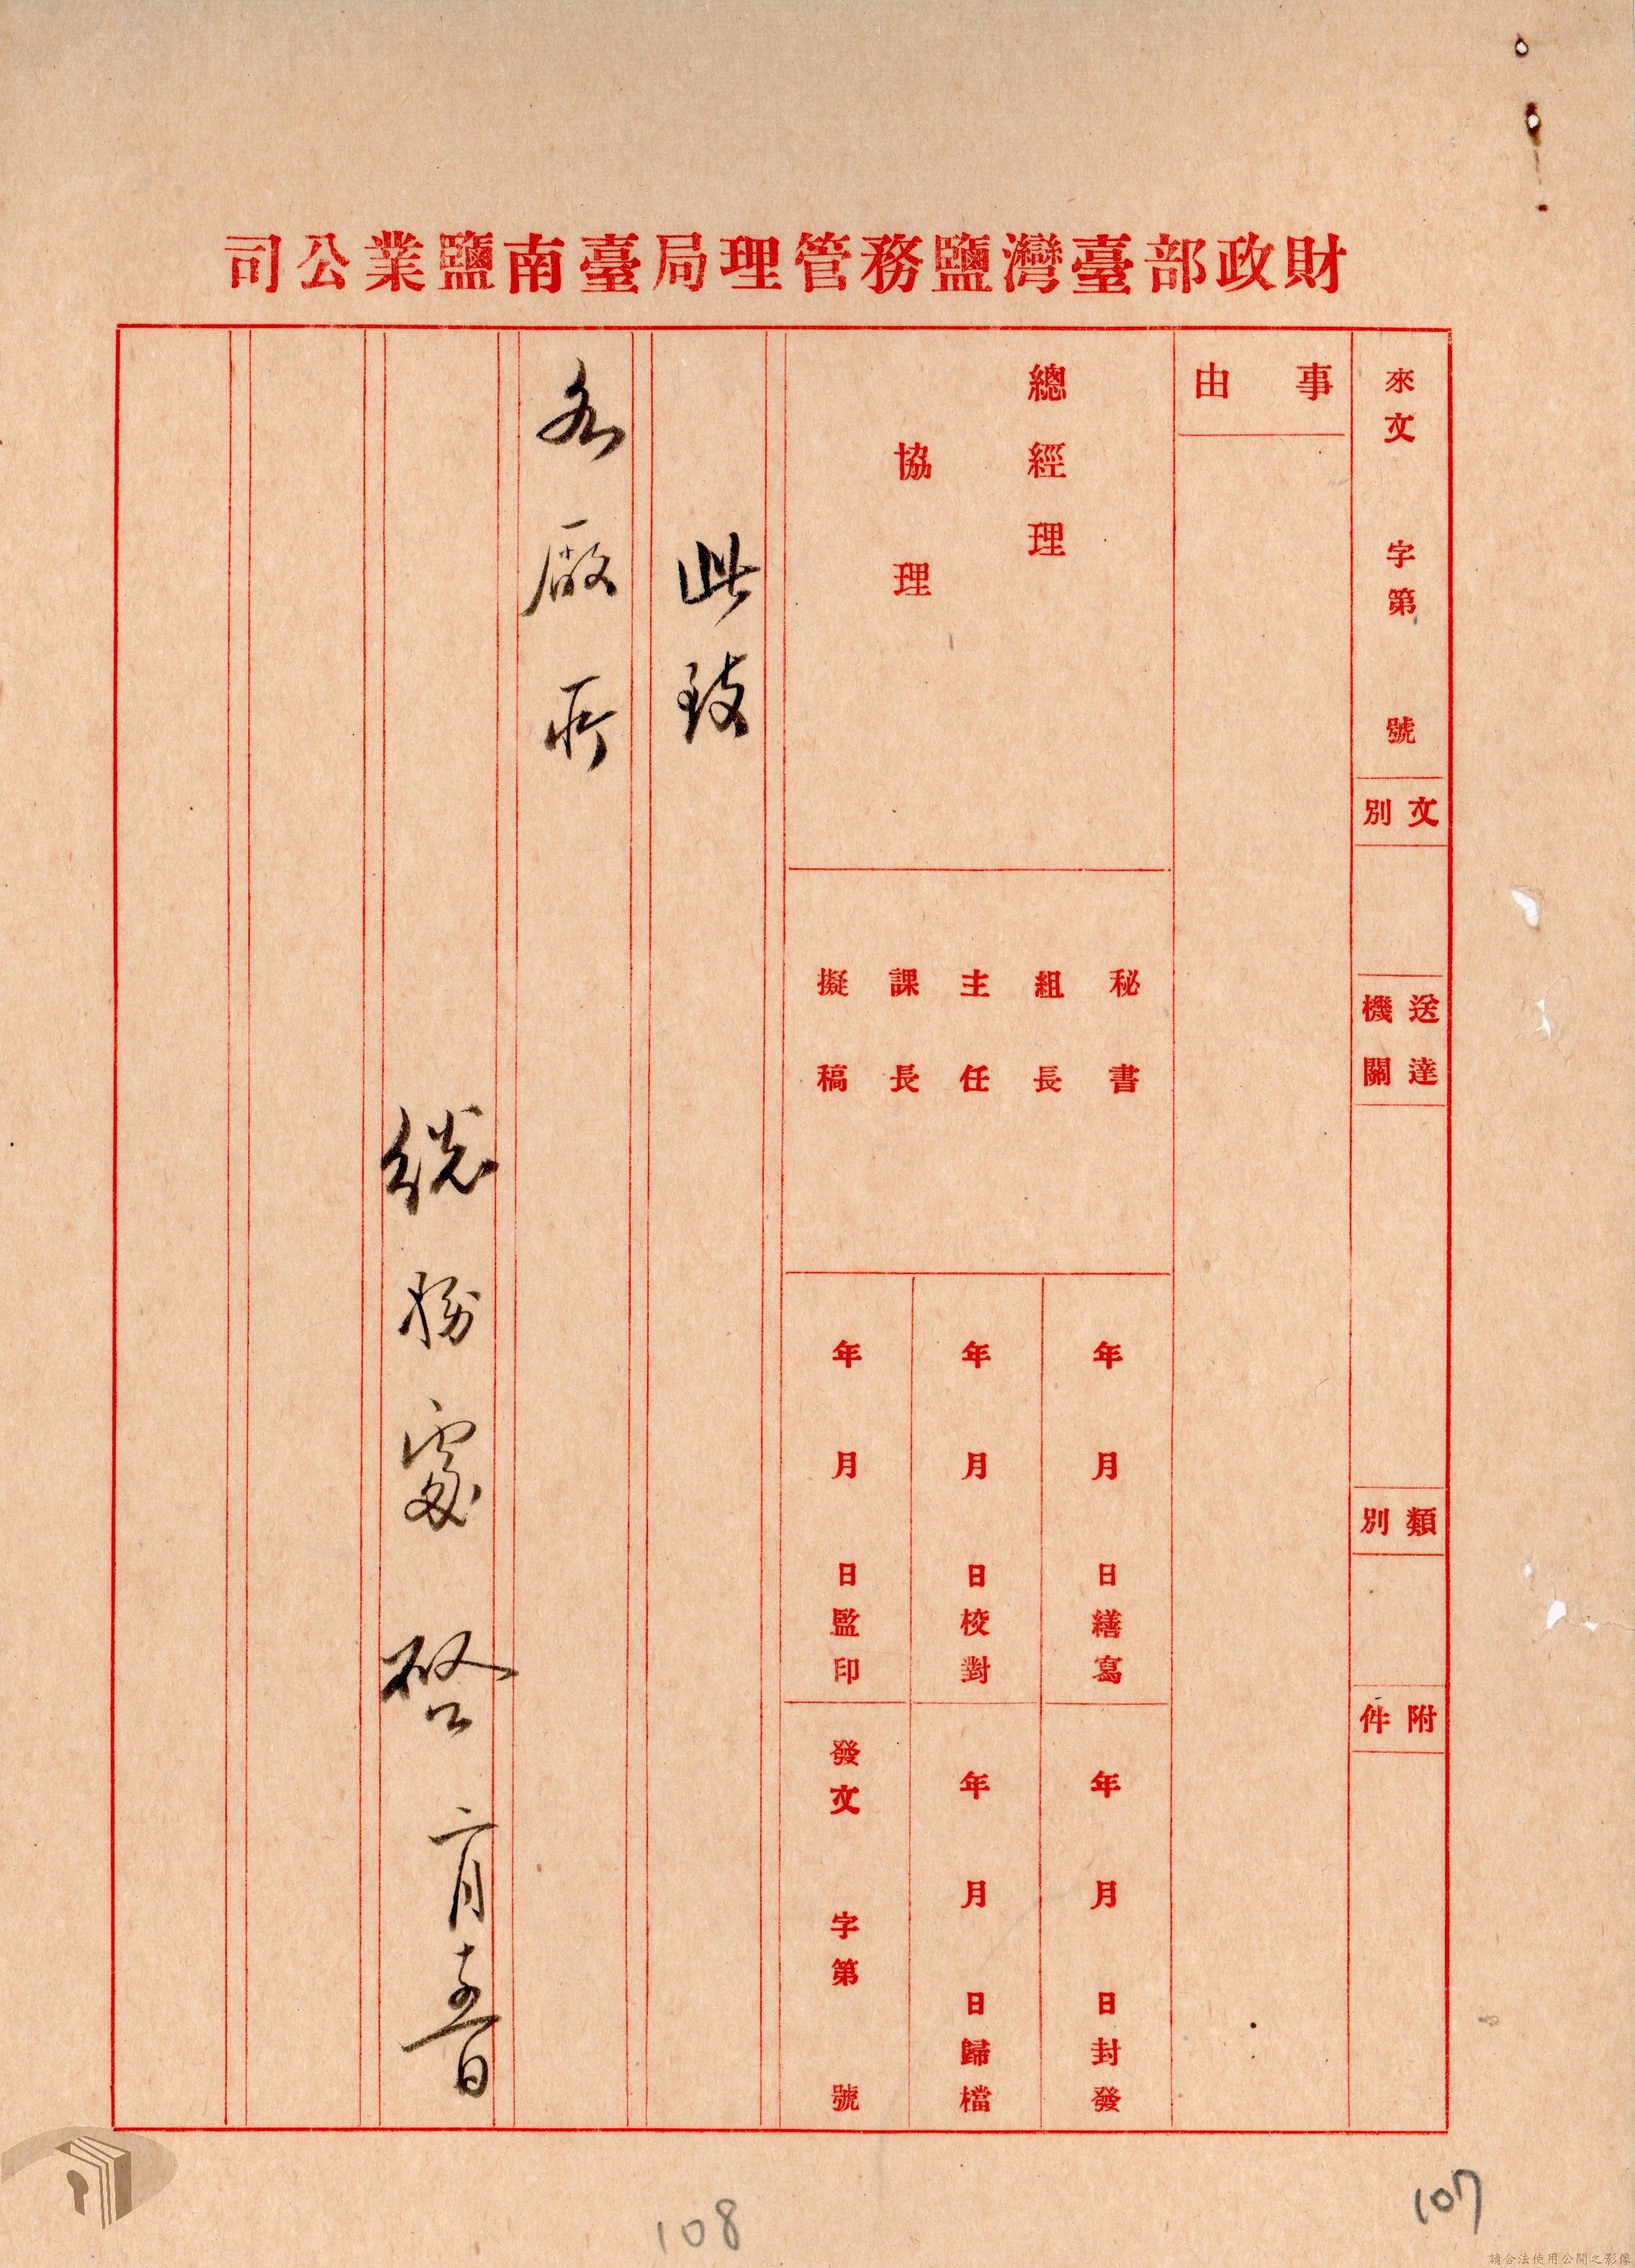 財政部臺灣鹽務管理局臺南鹽業公司
來文 字第 號
文別
送達機關
類別
附件
事由
總經理
協理
秘書
組長
主任
課長
擬稿
年 月 日繕寫
年 月 日校對
年 月 日監印
年 月 日封發
年 月 日歸檔
發文 字第 號
此致
各廠所
總務處 啓 月 日
108
107
請合法使用公開之影像